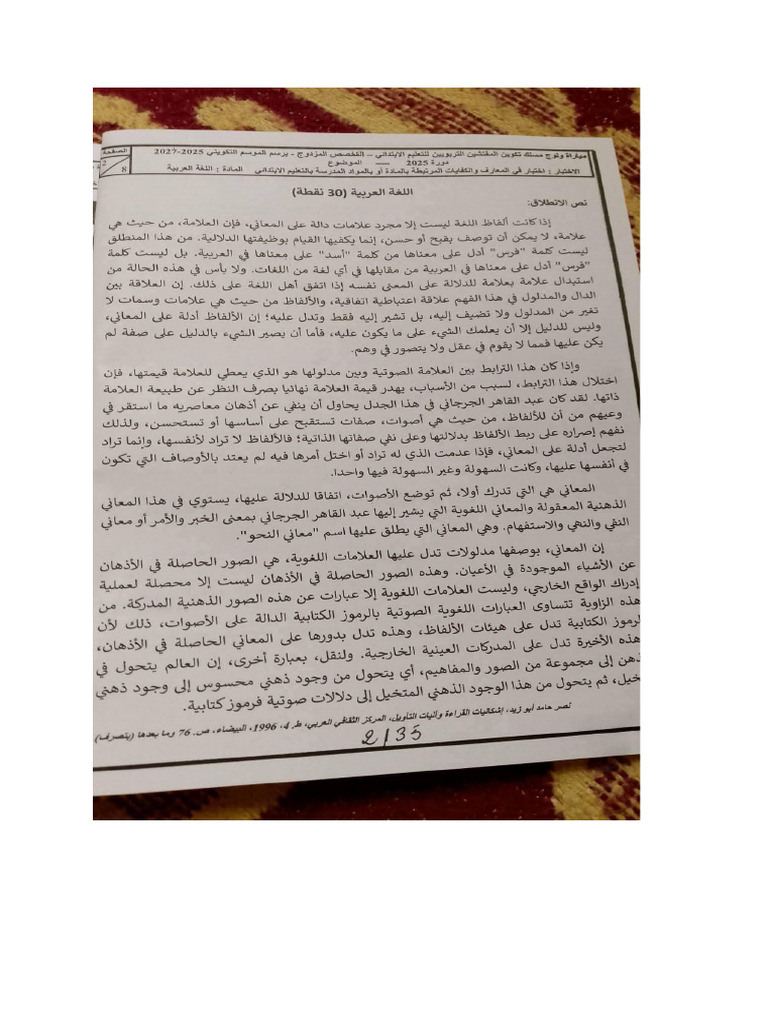 مباراة ولوج مسلك تكوين المفتشين التربويين للتعليم الابتدائي – التخصص المزدوج - برسم الموسم التكويني 2025-2027
الصفحة
دورة 2025 ــــ الموضوع
2
8
الاختبار : اختبار في المعارف والكفايات المرتبطة بالمادة أو بالمواد المدرسة بالتعليم الابتدائي المادة : اللغة العربية
اللغة العربية (30 نقطة)
نص الانطلاق:
إذا كانت ألفاظ اللغة ليست إلا مجرد علامات دالة على المعاني، فإن العلامة، من حيث هي
علامة، لا يمكن أن توصف بقبح أو حسن، إنما يكفيها القيام بوظيفتها الدلالية. من هذا المنطلق
ليست كلمة "فرس" أدل على معناها من كلمة "أسد" على معناها في العربية. بل ليست كلمة
"فرس" أدل على معناها في العربية من مقابلها في أي لغة من اللغات. ولا بأس في هذه الحالة من
استبدال علامة بعلامة للدلالة على المعنى نفسه إذا اتفق أهل اللغة على ذلك. إن العلاقة بين
الدال والمدلول في هذا الفهم علاقة اعتباطية اتفاقية، والألفاظ من حيث هي علامات وسمات لا
تغير من المدلول ولا تضيف إليه، بل تشير إليه فقط وتدل عليه؛ إن الألفاظ أدلة على المعاني،
وليس للدليل إلا أن يعلمك الشيء على ما يكون عليه، فأما أن يصير الشيء بالدليل على صفة لم
يكن عليها فمما لا يقوم في عقل ولا يتصور في وهم.
وإذا كان هذا الترابط بين العلامة الصوتية وبين مدلولها هو الذي يعطي للعلامة قيمتها، فإن
اختلال هذا الترابط، لسبب من الأسباب، يهدر قيمة العلامة نهائيا بصرف النظر عن طبيعة العلامة
ذاتها. لقد كان عبد القاهر الجرجاني في هذا الجدل يحاول أن ينفي عن أذهان معاصريه ما استقر في
وعيهم من أن للألفاظ، من حيث هي أصوات، صفات تستقبح على أساسها أو تستحسن، ولذلك
نفهم إصراره على ربط الألفاظ بدلالتها وعلى نفي صفاتها الذاتية؛ فالألفاظ لا تراد لأنفسها، وإنما تراد
لتجعل أدلة على المعاني، فإذا عدمت الذي له تراد أو اختل أمرها فيه لم يعتد بالأوصاف التي تكون
في أنفسها عليها، وكانت السهولة وغير السهولة فيها واحدا.
المعاني هي التي تدرك أولا، ثم توضع الأصوات، اتفاقا للدلالة عليها، يستوي في هذا المعاني
الذهنية المعقولة والمعاني اللغوية التي يشير إليها عبد القاهر الجرجاني بمعنى الخبر والأمر أو معاني
النفي والنهي والاستفهام. وهي المعاني التي يطلق عليها اسم "معاني النحو".
إن المعاني، بوصفها مدلولات تدل عليها العلامات اللغوية، هي الصور الحاصلة في الأذهان
عن الأشياء الموجودة في الأعيان. وهذه الصور الحاصلة في الأذهان ليست إلا محصلة لعملية
إدراك الواقع الخارجي، وليست العلامات اللغوية إلا عبارات عن هذه الصور الذهنية المدركة. من
هذه الزاوية تتساوى العبارات اللغوية الصوتية بالرموز الكتابية الدالة على الأصوات، ذلك لأن
لرموز الكتابية تدل على هيئات الألفاظ، وهذه تدل بدورها على المعاني الحاصلة في الأذهان،
هذه الأخيرة تدل على المدركات العينية الخارجية. ولنقل، بعبارة أخرى، إن العالم يتحول في
ذهن إلى مجموعة من الصور والمفاهيم، أي يتحول من وجود ذهني محسوس إلى وجود ذهني
تخيل، ثم يتحول من هذا الوجود الذهني المتخيل إلى دلالات صوتية فرموز كتابية.
نصر حامد أبو زيد، إشكاليات القراءة وآليات التأويل، المركز الثقافي العربي، ط. 4، 1996، البيضاء، ص. 76 وما بعدها (بتصرف)
2/35